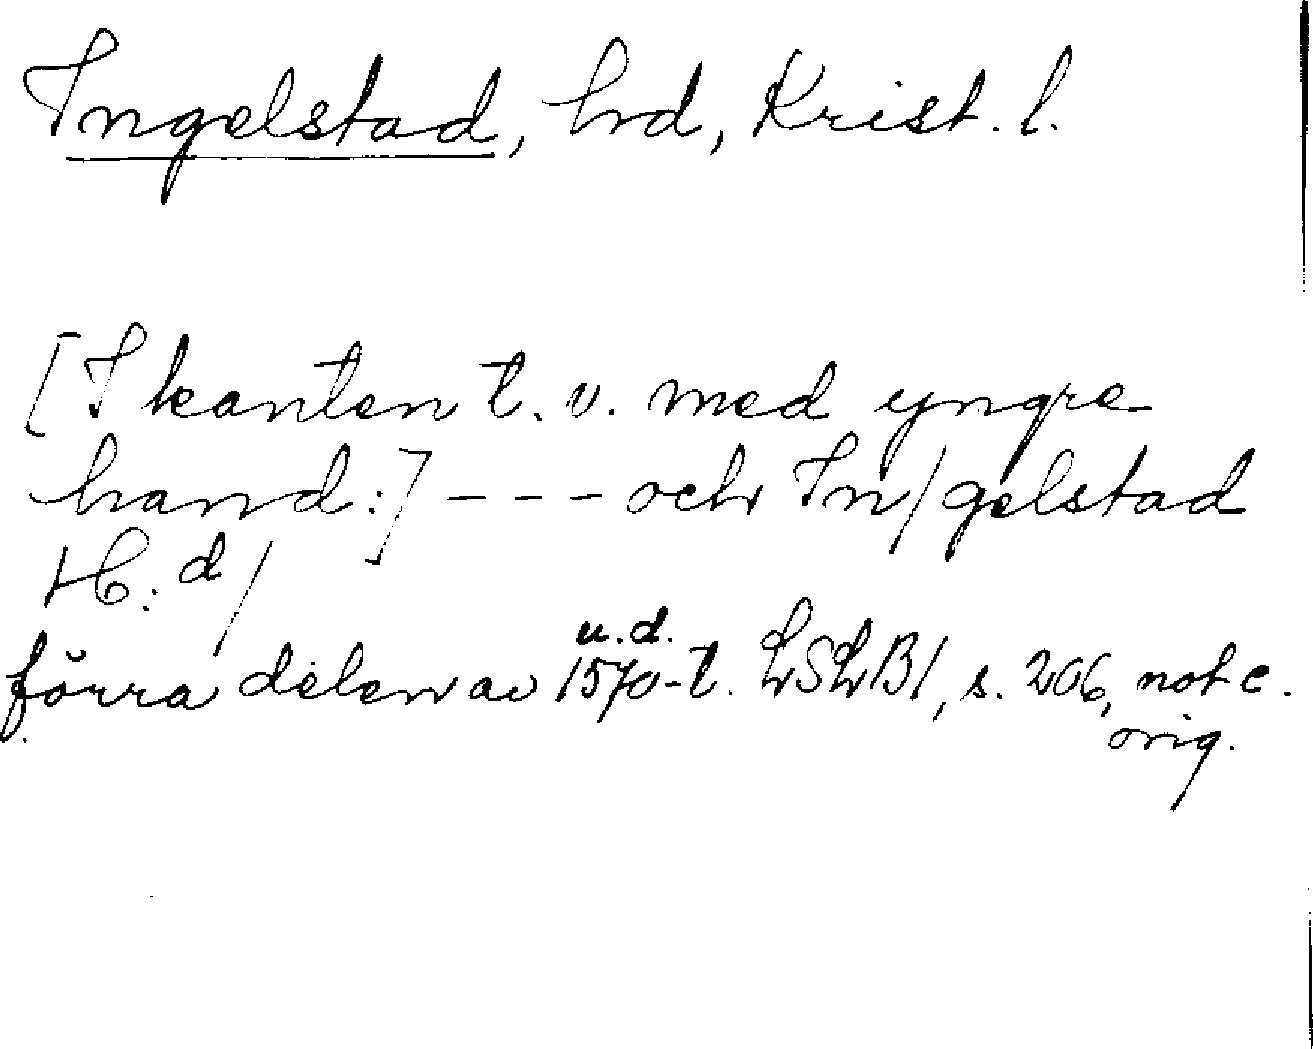 Ingelstad, hd, Krist. l.
[I kanten t. v. med yngre
hand:] - - - och In/gelstad
H:d/
u.d.
förra delen av 1570-t. LSLB1, s. 206, not c.
orig.